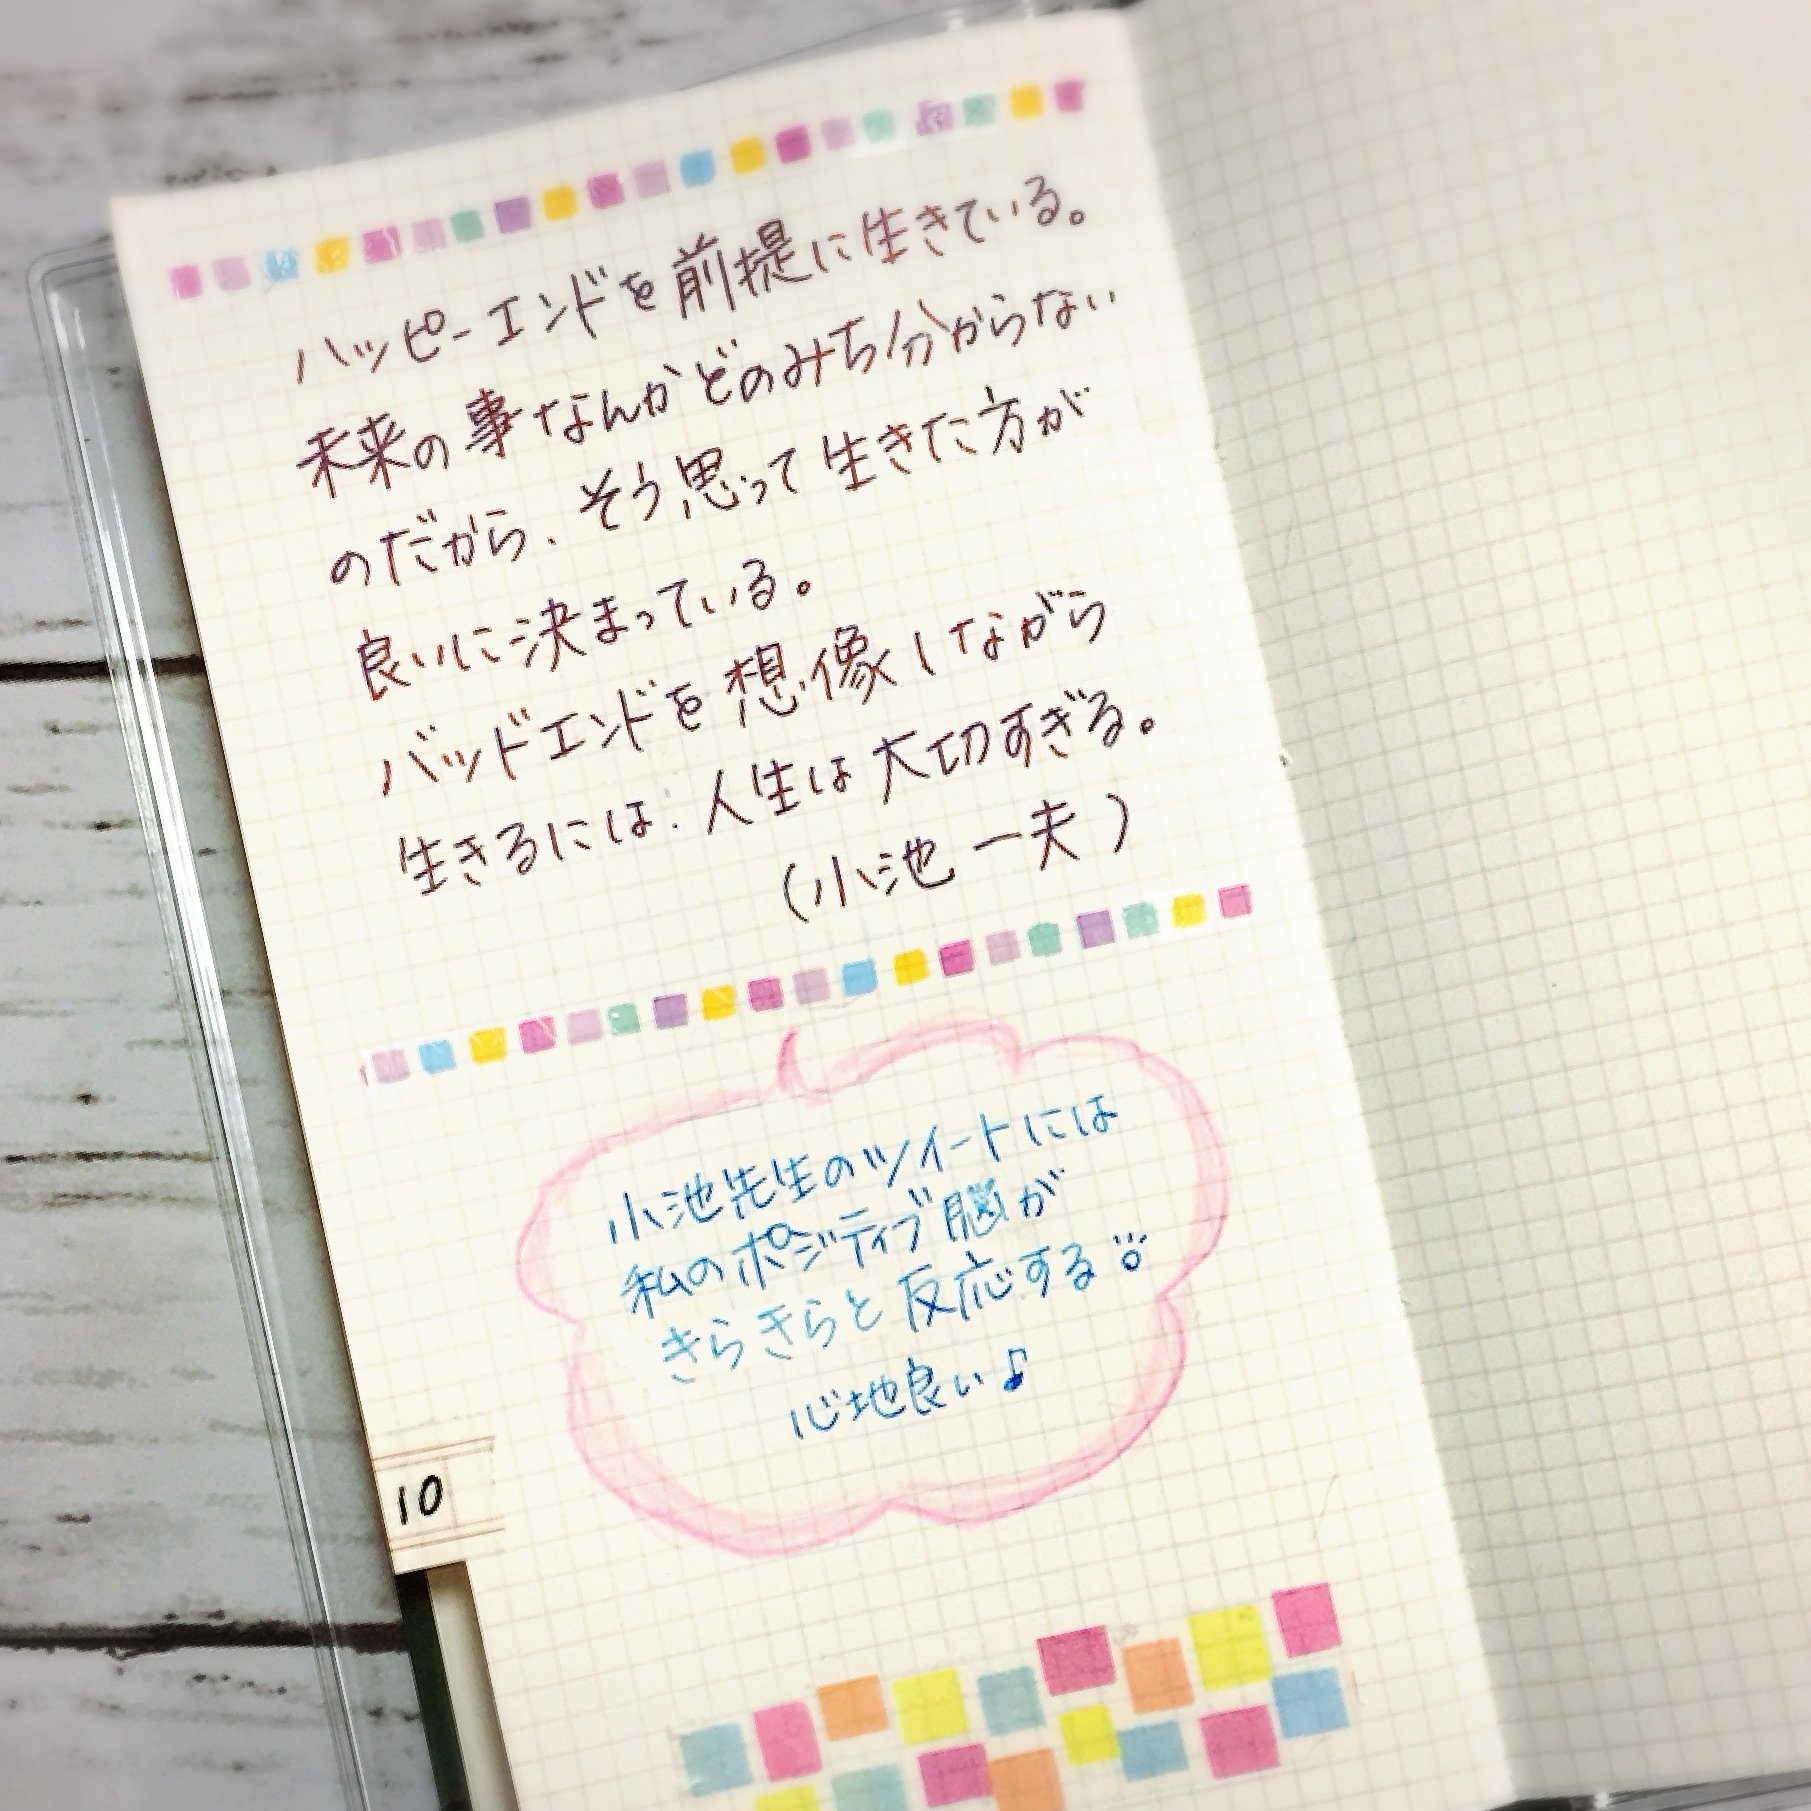 ハッピーエンドを前提に生きている。
未来の事なんかどのみち分からない
のだから、そう思って生きた方が
良いに決まっている。
バッドエンドを想像しながら
生きるには、人生は大切すぎる。
(小池一夫)
小池先生のツイートには
私のポジティブ脳が
きらきらと反応する
心地良い♪
10